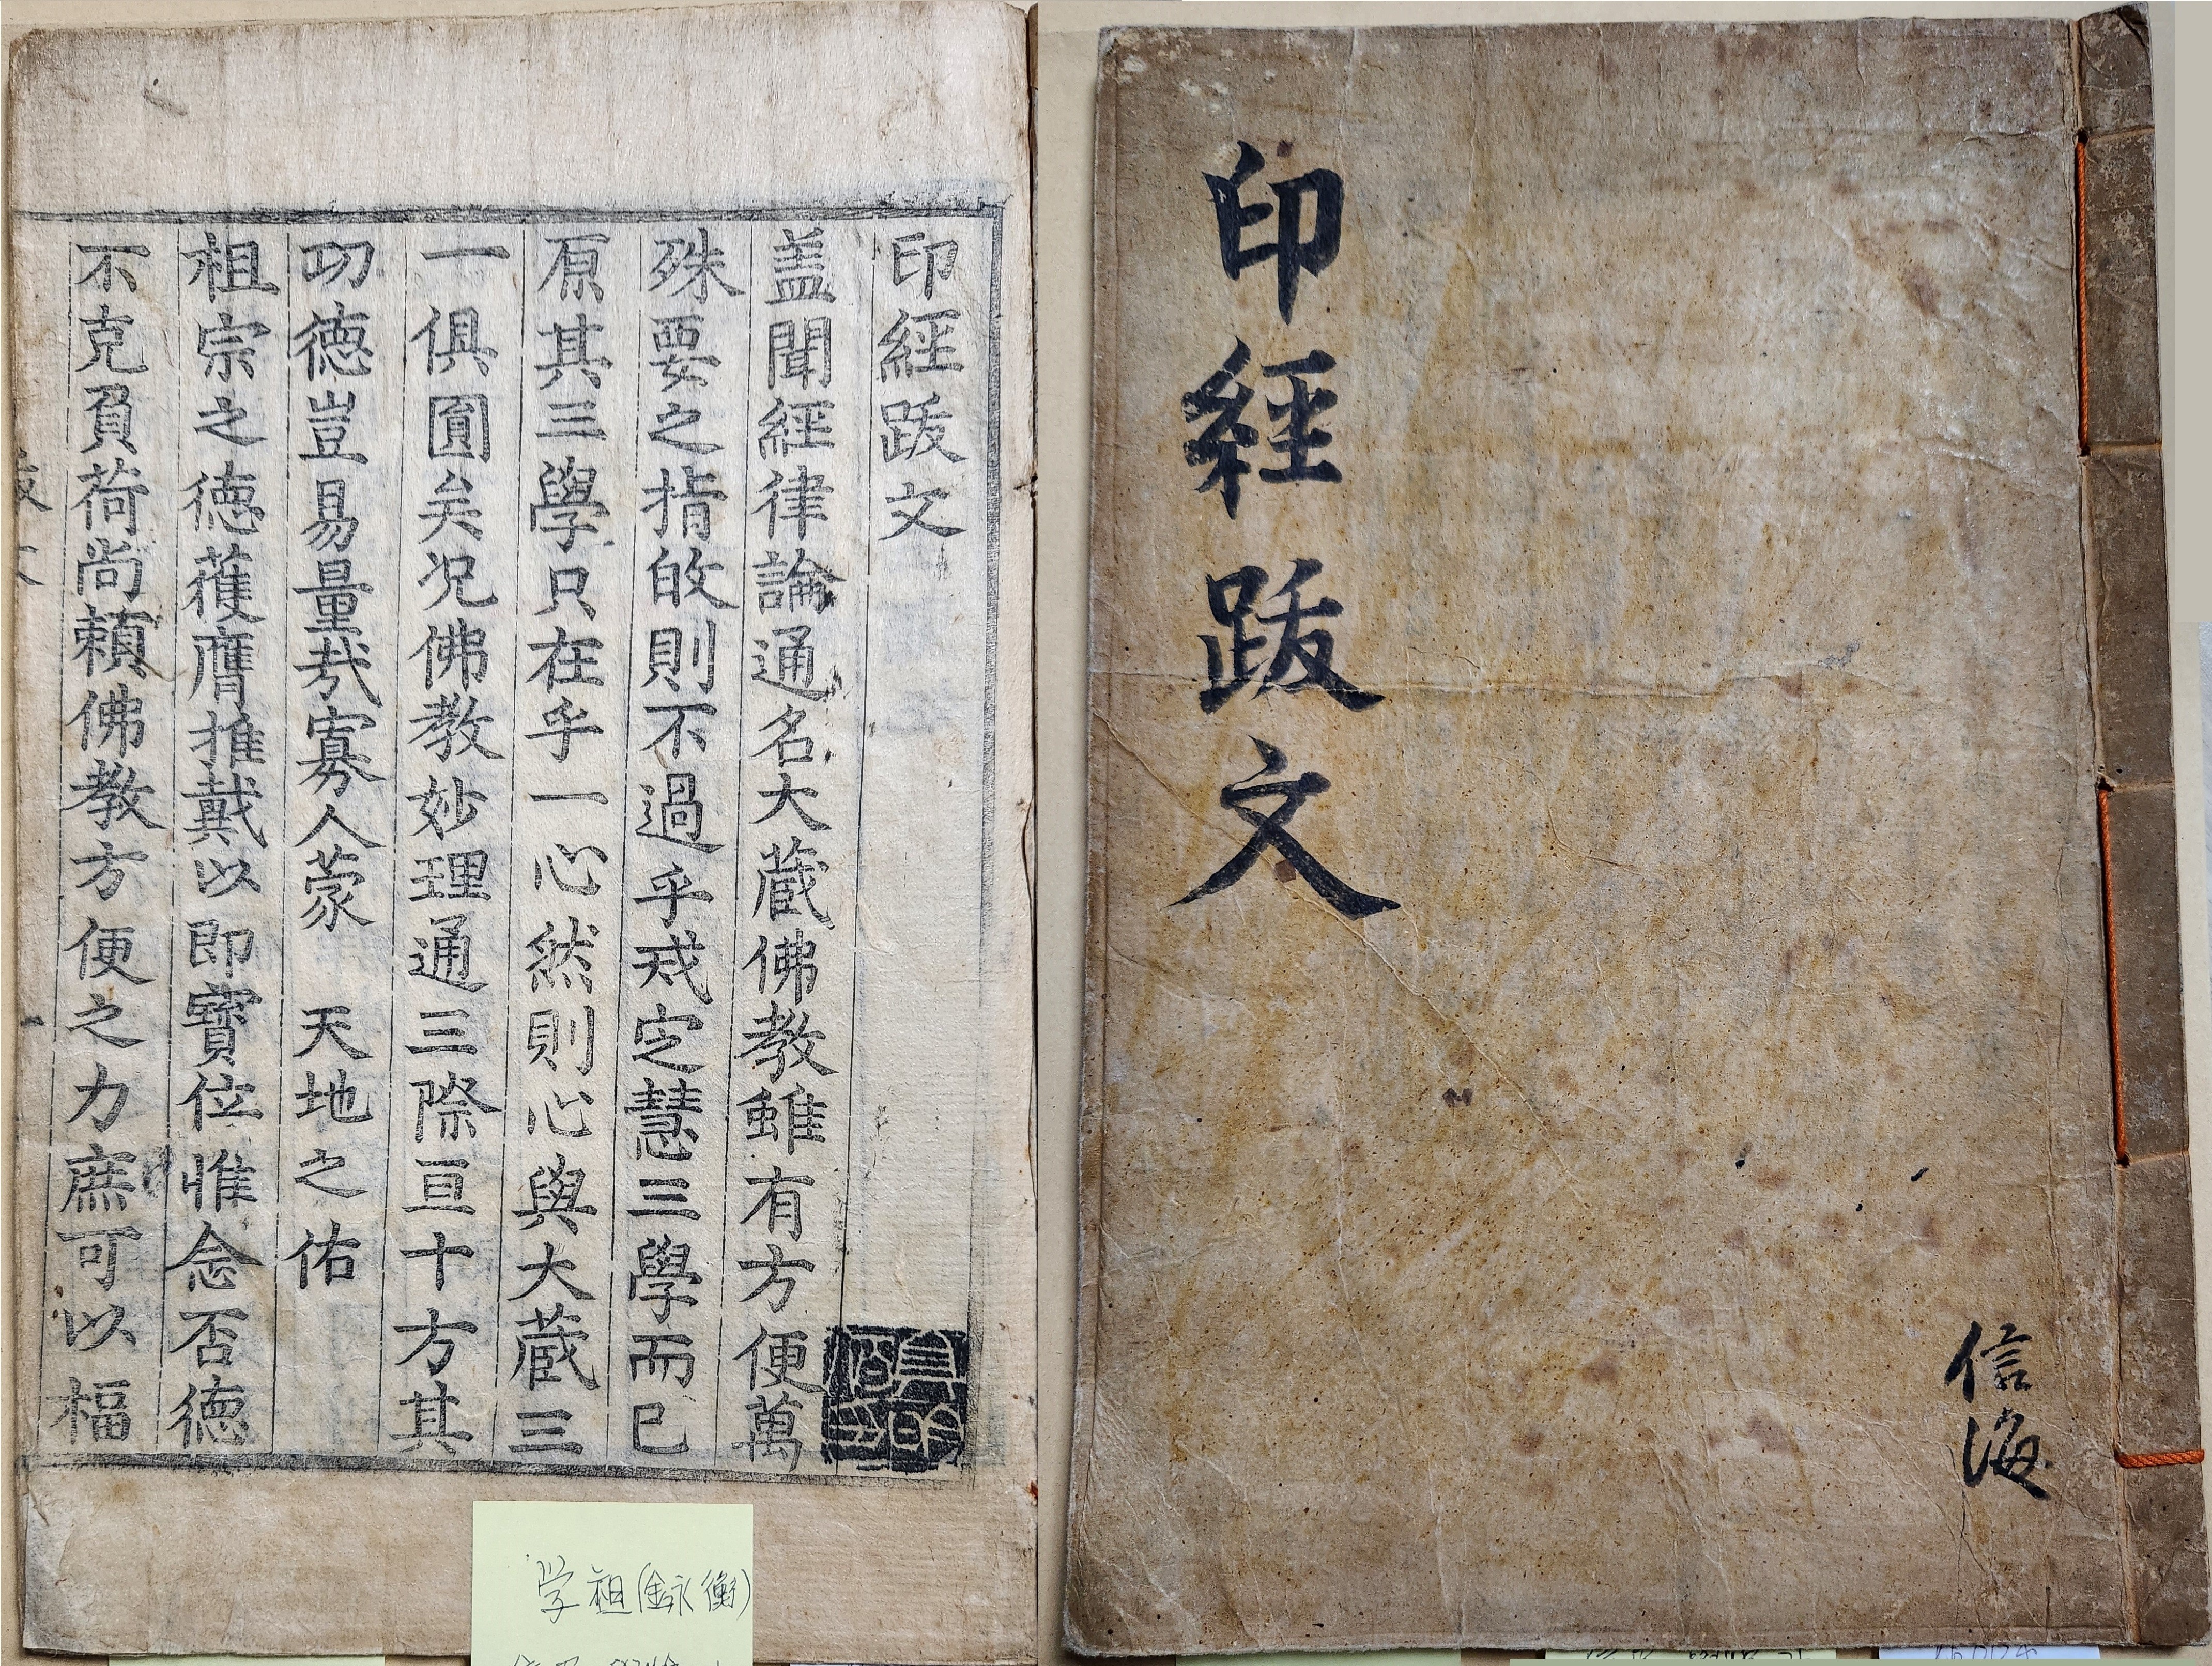 印經跋文
信海
印經跋文
盖聞經律論通名大蔵佛教雖有方便萬
殊要之指㪷則不過乎戒定慧三學而已
原其三學只在乎一心然則心與大蔵三
一俱圓矣况佛教妙理通三際亘十方其
功德豈易量哉寡人蒙 天地之佑
祖宗之德獲膺推戴以即寳位惟念否德
不克負荷尚頼佛教方便之力庶可以福
学祖(金永衡)